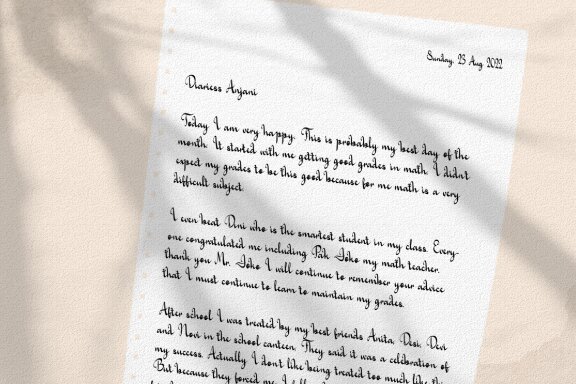 Sunday, 23 Aug 2022
Diariess Anjani
Today I am very happy. This is probably my best day of the
month. It started with me getting good grades in math. I didn't
expect my grades to be this good because for me math is a very
difficult subject.
I even beat Dini who is the smartest student in my class. Every-
one congratulated me including Pak Joko my math teacher.
thank you Mr. Joko I will continue to remember your advice
that I must continue to learn to maintain my grades.
After school I was treated by my best friends Anita, Desi, Devi
and Novi in the school canteen. They said it was a celebration of
my success. Actually I don't like being treated too much like this
But because they forced me I